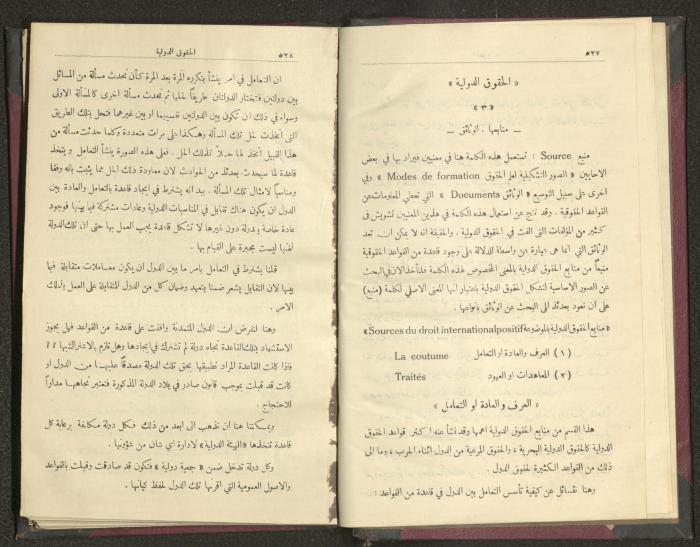 ٥٢٧
« الحقوق الدولية »
« ٣ »
— منابعها . الوثائق —
منبع Source : تستعمل هذه الكلمة هنا في معنيين فيراد بها في بعض
الاحايين « الصور التشكيلية لعلم الحقوق Modes de formation » وفي
اخرى على سبيل التوسع « الوثائق Documents » التي تعطي المعلومات عن
القواعد الحقوقية . وقد نتج عن استعمال هذه الكلمة في هذين المعنيين تشويش في
كثير من المؤلفات التي الفت في الحقوق الدولية . والحقيقة انه لا يمكن ان تعد
الوثائق التي انما هي عبارة عن واسطة للدلالة على وجود قاعدة من القواعد الحقوقية
منبعاً من منابع الحقوق الدولية بالمعنى المخصوص لهذه الكلمة فلنأخذ الان في البحث
عن الصور الاساسية لتشكل الحقوق الدولية باعتبار انها المعنى الاصلي لكلمة (منبع)
على ان نعود بعدئذ الى البحث عن الوثائق بانواعها .
« منابع الحقوق الدولية الموضوعة Sources du droit international positif »
( ١ ) العرف والعادة او التعامل La coutume
( ٢ ) المعاهدات او العهود Traités
« العرف والعادة او التعامل »
هذا القسم من منابع الحقوق الدولية اهمها وقد نشأ عنه اكثر قواعد الحقوق
الدولية كالحقوق الدولية البحرية ، والحقوق المرعية بين الدول اثناء الحرب ، وما الى
ذلك من القواعد الكثيرة لحقوق الدول .
وهنا نتسائل عن كيفية تأسس التعامل بين الدول في قاعدة من القواعد :
٥٢٨ الحقوق الدولية
ان التعامل في امر ينشأ بتكرره المرة بعد المرة كأن تحدث مسألة من المسائل
بين دولتين فتختار الدولتان طريقاً لحلها ثم تحدث مسألة اخرى كالمسألة الاولى
وسواء في ذلك ان تكون بين الدولتين نفسيهما او بين غيرهما فتحل بتلك الطريق
التي اتخذت لحل تلك المسألة وهكذا على مرات متعددة وكلما حدثت مسألة من
هذا القبيل اتخذ لها حلاً كذلك الحل . فعلى هذه الصورة ينشأ التعامل ويتخذ
قاعدة لما سيحدث بعدئذ من الحوادث لان معاودة ذلك الحل مما يثبت بانه وفقاً
ومناسباً لامثال تلك المسألة . بيد انه يشترط في ايجاد قاعدة بالتعامل والعادة بين
الدول ان يكون هناك تقابل في المناسبات الدولية وعادات مشتركة فيما بينها فوجود
عادة خاصة بدولة دون غيرها لا تشكل قاعدة يجب العمل بها حتى ان تلك الدولة
نفسها ليست مجبرة على القيام بها .
قلنا يشترط في التعامل بامر ما بين الدول ان يكون معاملات متقابلة فيما
بينها لان التقابل يشعر ضمناً بتعهد وضمان كل من الدول المتقابلة على العمل بذلك
الامر .
وهنا لنفرض ان الدول المتمدنة وافقت على قاعدة من القواعد فهل يجوز
الاستشهاد بتلك القاعدة تجاه دولة لم تشترك في ايجادها وهل تلزم بالاشتراك بها ؟ ؟
فاذا كانت القاعدة المراد تطبيقها بحق تلك الدولة مصدقاً عليها من الدول او
كانت قد قبلت بموجب قانون صادر في بلاد الدولة المذكورة فتعتبر تجاهها مداراً
للاحتجاج .
ويمكننا هنا ان نذهب الى ابعد من ذلك فكل دولة مكلفة برعاية كل
قاعدة تتخذها « الهيئة الدولية » لادارة اي شان من شؤونها .
وكل دولة تدخل ضمن « جمعية دولية » فتكون قد صادقت وقبلت بالقواعد
والاصول العمومية التي اقرتها تلك الدول لحفظ كيانها .